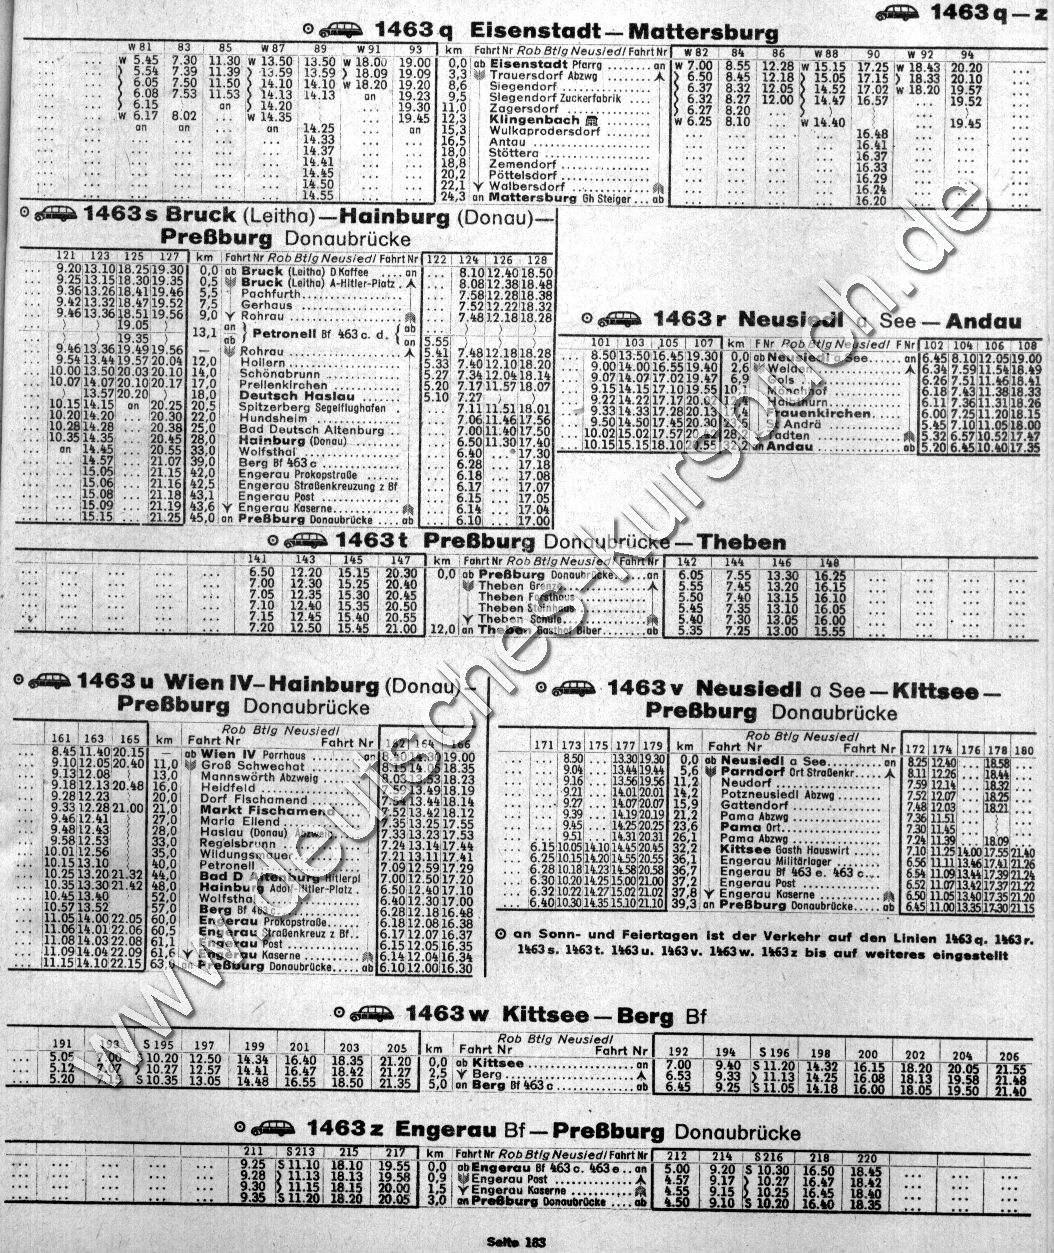 1463 q – z
1463 q Eisenstadt – Mattersburg
W 81 83 85 W 87 89 W 91 93 km Fahrt Nr Rob Btlg Neusiedl Fahrt Nr W 82 84 86 W 88 90 W 92 94
W 5.45 7.30 11.30 W 13.50 13.50 W 18.00 19.00 0,0 ab Eisenstadt Pfarrg an W 7.00 8.55 12.28 W 15.15 17.25 W 18.43 20.20
5.54 7.39 11.39 13.59 13.59 18.09 19.09 3,3 Trauersdorf Abzwg 6.50 8.45 12.18 15.05 17.15 18.33 20.10
6.05 7.50 11.50 14.10 14.10 W 18.20 19.20 8,6 Siegendorf 6.37 8.32 12.05 14.52 17.02 W 18.20 19.57
6.08 7.53 11.53 14.13 14.13 an 19.23 9,5 Siegendorf Zuckerfabrik 6.32 8.27 12.00 14.47 16.57 19.52
6.15 an 14.20 19.30 11,0 Zagersdorf 6.27 8.20
W 6.17 8.02 W 14.35 19.45 12,3 Klingenbach W 6.25 8.10 W 14.40 19.45
an an an 14.25 an 15,3 Wulkaprodersdorf 16.48
14.33 16,5 Antau 16.41
14.37 18,0 Stöttera 16.37
14.41 18,8 Zemendorf 16.33
14.45 20,2 Pöttelsdorf 16.29
14.50 22,1 Walbersdorf 16.24
14.55 24,3 an Mattersburg Gh Steiger ab 16.20
1463 s Bruck (Leitha) – Hainburg (Donau) –
Preßburg Donaubrücke
121 123 125 127 km Fahrt Nr Rob Btlg Neusiedl Fahrt Nr 122 124 126 128
9.20 13.10 18.25 19.30 0,0 ab Bruck (Leitha) D Kaffee an 8.10 12.40 18.50
9.25 13.15 18.30 19.35 0,5 Bruck (Leitha) A-Hitler-Platz 8.08 12.38 18.48
9.36 13.26 18.41 19.46 5,5 Pachfurth 7.58 12.28 18.38
9.42 13.32 18.47 19.52 7,5 Gerhaus 7.52 12.22 18.32
9.46 13.36 18.51 19.56 9,0 Rohrau 7.48 12.18 18.28
19.05 an ab
19.35 13,1 ab Petronell Bf 463 c. d. an 5.55
9.46 13.36 19.49 19.56 — Rohrau 5.41 7.48 12.18 18.28
9.54 13.44 19.57 20.04 12,0 Hollern 5.33 7.40 12.10 18.20
10.00 13.50 20.03 20.10 14,0 Schönabrunn 5.27 7.34 12.04 18.14
10.07 14.07 20.10 20.17 17,0 Prellenkirchen 5.20 7.17 11.57 18.07
13.57 20.20 18,0 Deutsch Haslau 5.10 7.27
10.15 14.15 an 20.25 20,5 Spitzerberg Segelflughafen 7.11 11.51 18.01
10.20 14.20 20.30 22,0 Hundsheim 7.06 11.46 17.56
10.28 14.28 20.38 25,0 Bad Deutsch Altenburg 7.00 11.40 17.50
10.35 14.35 20.45 28,0 Hainburg (Donau) 6.50 11.30 17.40
an 14.45 20.55 33,0 Wolfsthal 6.40 17.30
14.57 21.07 39,0 Berg Bf 463 c 6.28 17.18
15.05 21.15 42,0 Engerau Prokopstraße 6.18 17.08
15.06 21.16 42,5 Engerau Straßenkreuzung z Bf 6.17 17.07
15.08 21.18 43,1 Engerau Post 6.15 17.05
15.09 21.19 43,6 Engerau Kaserne 6.14 17.04
15.15 21.25 45,0 an Preßburg Donaubrücke ab 6.10 17.00
1463 r Neusiedl a See – Andau
101 103 105 107 km F Nr Rob Btlg Neusiedl F Nr 102 104 106 108
8.50 13.50 16.45 19.30 0,0 ab Neusiedl a See an 6.45 8.10 12.05 19.00
9.00 14.00 16.55 19.40 2,6 Weiden 6.34 7.59 11.54 18.49
9.07 14.07 17.02 19.47 6,9 Gols 6.26 7.51 11.46 18.41
9.15 14.15 17.10 19.55 6.18 7.43 11.38 18.33
9.22 14.22 17.17 6.11 7.36 11.31 18.26
9.33 14.33 17.28 Frauenkirchen 6.00 7.25 11.20 18.15
9.50 14.50 17.45 20.30 Andrä 5.45 7.10 11.05 18.00
10.02 15.02 17.57 Tadten 5.32 6.57 10.52 17.47
10.15 15.15 18.10 an Andau ab 5.20 6.45 10.40 17.35
1463 t Preßburg Donaubrücke – Theben
141 143 145 147 km Fahrt Nr Rob Btlg Neusiedl Fahrt Nr 142 144 146 148
6.50 12.20 15.15 20.30 0,0 ab Preßburg Donaubrücke an 6.05 7.55 13.30 16.25
7.00 12.30 15.25 20.40 Theben Grenze 5.55 7.45 13.20 16.15
7.05 12.35 15.30 20.45 Theben Forsthaus 5.50 7.40 13.15 16.10
7.10 12.40 15.35 20.50 Theben Steinhaus 5.45 7.35 13.10 16.05
7.15 12.45 15.40 20.55 Theben Schule 5.40 7.30 13.05 16.00
7.20 12.50 15.45 21.00 12,0 an Theben Gasthof Biber ab 5.35 7.25 13.00 15.55
1463 u Wien IV – Hainburg (Donau) –
Preßburg Donaubrücke
Rob Btlg Neusiedl
161 163 165 km Fahrt Nr Fahrt Nr 162 164 166
8.45 11.40 20.15 — ab Wien IV Porrhaus an 19.00
9.10 12.05 20.40 11,0 Groß Schwechat 8.15 14.05 18.35
9.13 12.08 13,0 Mannswörth Abzweig 8.03 13.53 18.23
9.18 12.13 20.48 16,0 Heidfeld 13.49 18.19
9.28 12.23 20,0 Dorf Fischamend 7.54 13.44 18.14
9.33 12.28 21.00 21,0 Markt Fischamend 7.52 13.42 18.12
9.46 12.41 27,0 Maria Ellend 7.35 13.25 17.55
9.48 12.43 28,0 Haslau (Donau) Abzweig 7.33 13.23 17.53
9.58 12.53 33,0 Regelsbrunn 7.24 13.14 17.44
10.01 12.56 35,0 Wildungsmauer 7.21 13.11 17.41
10.15 13.10 40,0 Petronell 7.09 12.59 17.29
10.25 13.20 21.32 44,0 Bad D Altenburg Hitlerpl 7.00 12.50 17.20
10.35 13.30 21.42 48,0 Hainburg Adolf-Hitler-Platz 6.50 12.40 17.10
10.45 13.40 52,0 Wolfsthal 6.40 12.30 17.00
10.57 13.52 57,0 Berg Bf 463 c 6.28 12.18 16.48
11.05 14.00 22.05 60,0 Engerau Prokopstraße 6.18 12.08 16.38
11.06 14.01 22.06 60,5 Engerau Straßenkreuz z Bf 6.17 12.07 16.37
11.08 14.03 22.08 61,1 Engerau Post 6.15 12.05 16.35
11.09 14.04 22.09 61,6 Engerau Kaserne 6.14 12.04 16.34
11.15 14.10 22.15 an Preßburg Donaubrücke ab 6.10 12.00 16.30
1463 v Neusiedl a See – Kittsee –
Preßburg Donaubrücke
Rob Btlg Neusiedl
171 173 175 177 179 km Fahrt Nr Fahrt Nr 172 174 176 178 180
8.50 13.30 19.30 0,0 ab Neusiedl a See an 8.25 12.40 18.58
9.04 13.44 19.44 5,6 Parndorf Ort Straßenkr 8.11 12.26 18.44
9.16 13.56 19.56 11,2 Neudorf 7.59 12.14 18.32
9.21 14.01 20.01 14,2 Potzneusiedl Abzwg 7.52 12.07 18.25
9.27 14.07 20.07 15,9 Gattendorf 7.48 12.03 18.21
9.39 14.19 20.19 21,2 Pama Abzwg 7.36 11.51
9.45 14.25 20.25 23,6 Pama Ort 7.30 11.45
9.51 14.31 20.31 26,1 Pama Abzwg 7.24 11.39 18.09
6.15 10.05 14.10 14.45 20.45 32,2 Kittsee Gasth Hauswirt 7.10 11.25 14.00 17.55 21.40
6.25 10.15 14.20 14.55 20.55 36,1 Engerau Militärlager 6.56 11.11 13.46 17.41 21.26
6.28 10.18 14.23 14.58 20.58 36,7 Engerau Bf 463 e. 463 c 6.54 11.09 13.44 17.39 21.24
6.30 10.20 14.25 15.00 21.00 37,2 Engerau Post 6.52 11.07 13.42 17.37 21.22
6.32 10.22 14.27 15.02 21.02 37,8 Engerau Kaserne 6.50 11.05 13.40 17.35 21.20
6.40 10.30 14.35 15.10 21.10 39,3 an Preßburg Donaubrücke ab 6.45 11.00 13.35 17.30 21.15
an Sonn- und Feiertagen ist der Verkehr auf den Linien 1463 q. 1463 r.
1463 s. 1463 t. 1463 u. 1463 v. 1463 w. 1463 z bis auf weiteres eingestellt
1463 w Kittsee – Berg Bf
Rob Btlg Neusiedl
191 193 S 195 197 199 201 203 205 km Fahrt Nr Fahrt Nr 192 194 S 196 198 200 202 204 206
5.05 7.00 S 10.20 12.50 14.34 16.40 18.35 21.20 0,0 ab Kittsee an 7.00 9.40 S 11.20 14.32 16.15 18.20 20.05 21.55
5.12 7.07 10.27 12.57 14.41 16.47 18.42 21.27 2,5 Berg 6.53 9.33 11.13 14.25 16.08 18.13 19.58 21.48
5.20 S 10.35 13.05 14.48 16.55 18.50 21.35 5,0 an Berg Bf 463 c ab 6.45 9.25 S 11.05 14.18 16.00 18.05 19.50 21.40
1463 z Engerau Bf – Preßburg Donaubrücke
211 S 213 215 217 km Fahrt Nr Rob Btlg Neusiedl Fahrt Nr 212 214 S 216 218 220
9.25 S 11.10 18.10 19.55 0,0 ab Engerau Bf 463 c. 463 e an 5.00 9.20 S 10.30 16.50 18.45
9.28 11.13 18.13 19.58 0,9 Engerau Post 4.57 9.17 10.27 16.47 18.42
9.30 11.15 18.15 20.00 1,5 Engerau Kaserne 4.55 9.15 10.25 16.45 18.40
9.35 S 11.20 18.20 20.05 3,0 an Preßburg Donaubrücke ab 4.50 9.10 S 10.20 16.40 18.35
Seite 183
www.deutsches-kursbuch.de